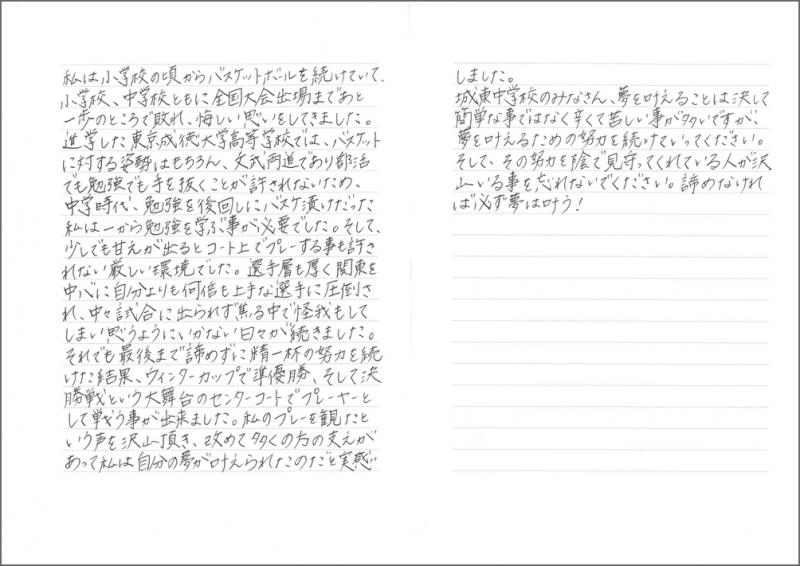 私は小学校の頃からバスケットボールを続けていて、
小学校、中学校ともに全国大会出場まであと
一歩のところで敗れ、悔しい思いをしてきました。
進学した東京成徳大学高等学校では、バスケット
に対する姿勢はもちろん、文武両道であり部活
でも勉強でも手を抜くことが許されないため、
中学時代、勉強を後回しにバスケ漬けだった
私は一から勉強を学ぶ事が必要でした。そして、
少しでも甘えが出るとコート上でプレーする事も許さ
れない厳しい環境でした。選手層も厚く関東を
中心に自分よりも何倍も上手な選手に圧倒さ
れ、中々試合に出られず焦る中で怪我もして
しまい思うようにいかない日々が続きました。
それでも最後まで諦めずに精一杯の努力を続
けた結果、ウィンターカップで準優勝、そして決
勝戦という大舞台のセンターコートでプレーヤーと
して戦う事が出来ました。私のプレーを観たと
いう声を沢山頂き、改めて多くの方の支えが
あって私は自分の夢が叶えられたこのだと実感
しました。
城東中学校のみなさん、夢を叶えることは決して
簡単な事ではなく辛くて苦しい事が多いですが、
夢を叶えるための努力を続けていってください。
そして、その努力を陰で見守ってくれている人が沢
山いる事を忘れないでください。諦めなけれ
ば必ず夢は叶う！